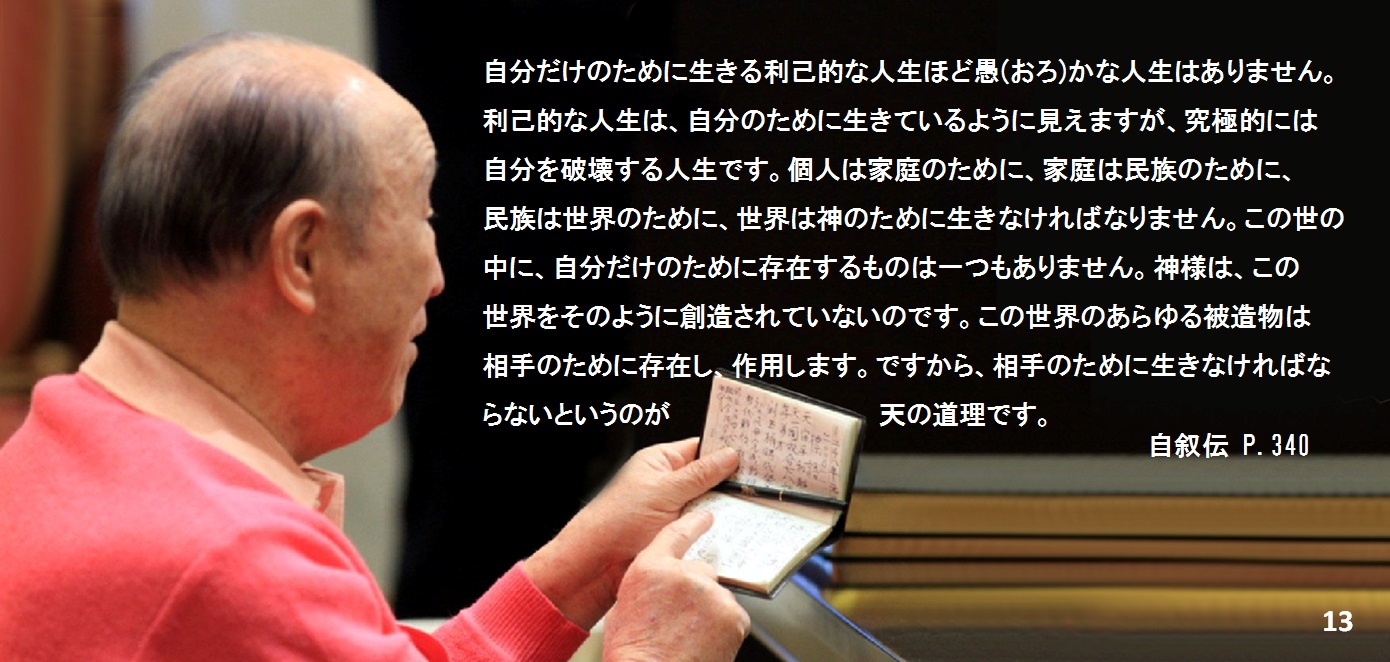 自分だけのために生きる利己的な人生ほど愚(おろ)かな人生はありません。
利己的な人生は、自分のために生きているように見えますが、究極的には
自分を破壊する人生です。個人は家庭のために、家庭は民族のために、
民族は世界のために、世界は神のために生きなければなりません。この世の
中に、自分だけのために存在するものは一つもありません。神様は、この
世界をそのように創造されていないのです。この世界のあらゆる被造物は
相手のために存在し、作用します。ですから、相手のために生きなければな
らないというのが 天の道理です。
自叙伝 P.340
13